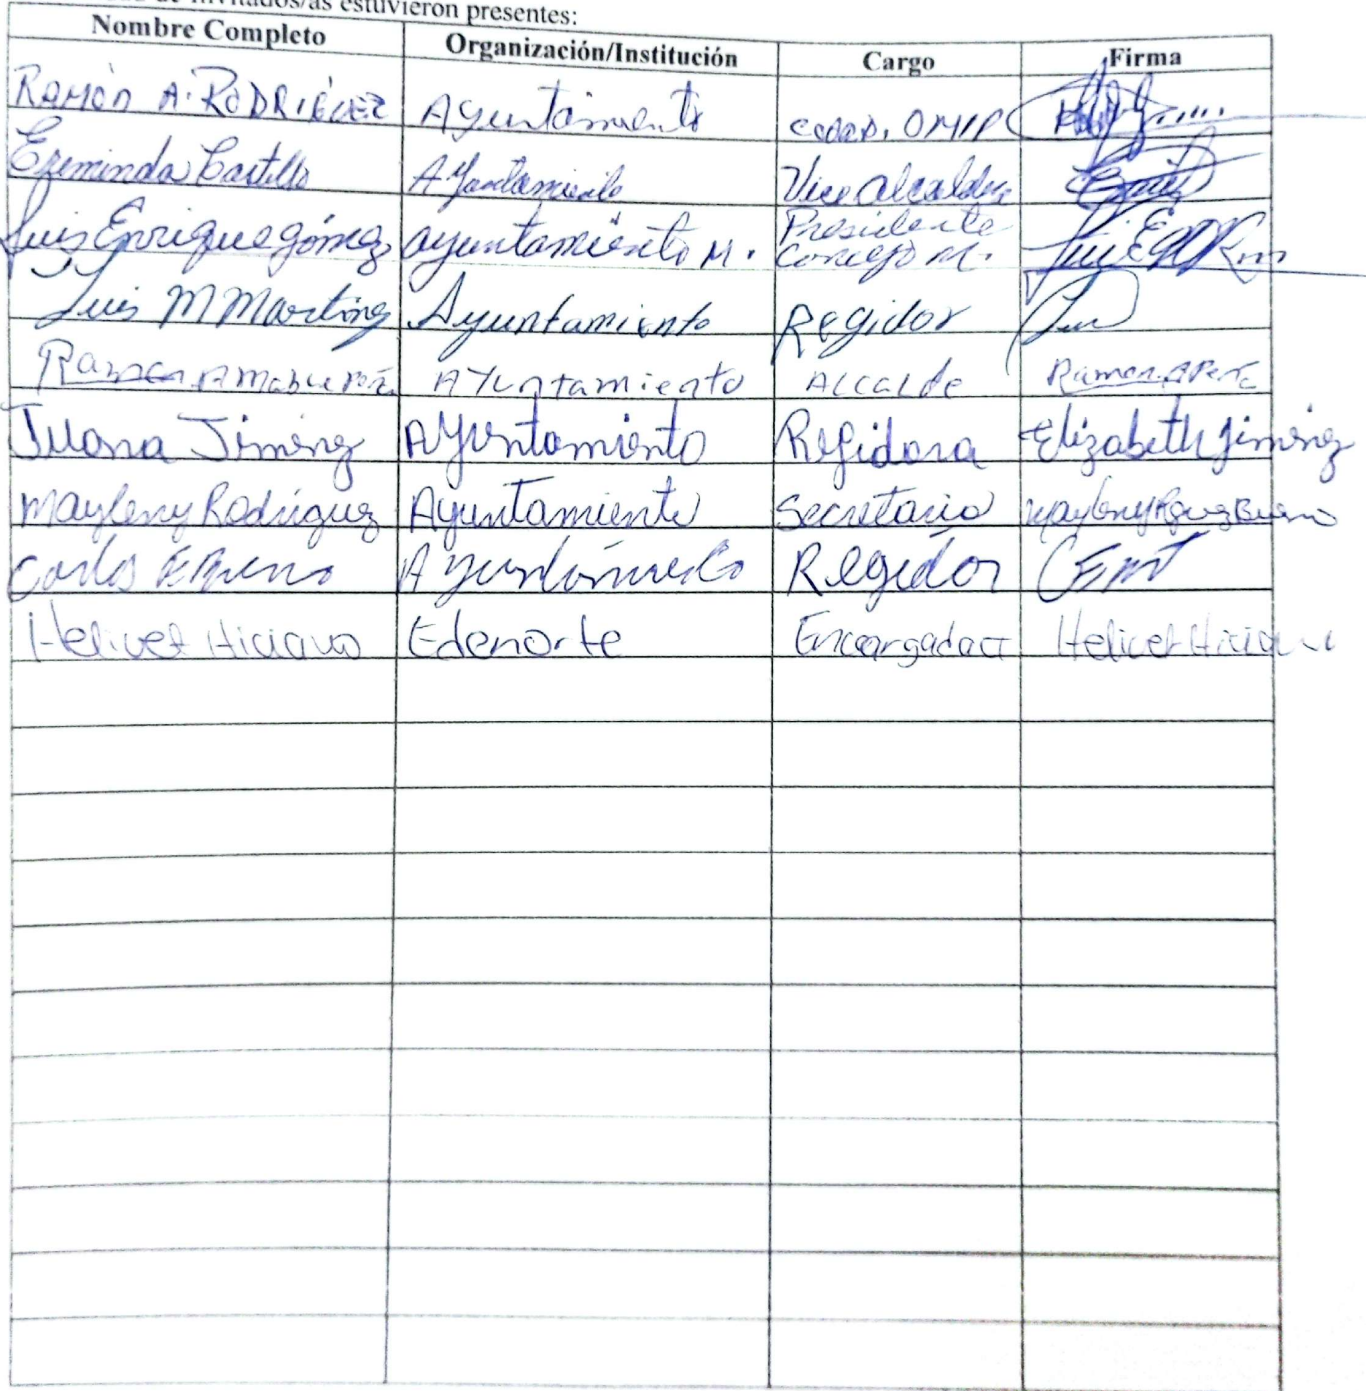 de Invitados/as estuvieron presentes:
Nombre Completo Organización/Institución Cargo Firma
Ramón A. RODRIGUEZ Ayuntamiento coord. OMIP
Ereminda Castillo Ayuntamiento Vice alcaldesa
Luis Enrique gómez ayuntamiento M. Presidente Concejo M.
Luis M Martinez Ayuntamiento Regidor
Ramon AYuntamiento ALcalde Ramon
Juana Jiminez AYuntamiento Regidora Elizabeth Jiminez
Mayleny Rodriguez Ayuntamiento Secretaria Mayleny
Carlos Ayuntamiento Regidor
Helivet Hiciano Edenorte Encargada Helivet Hiciano